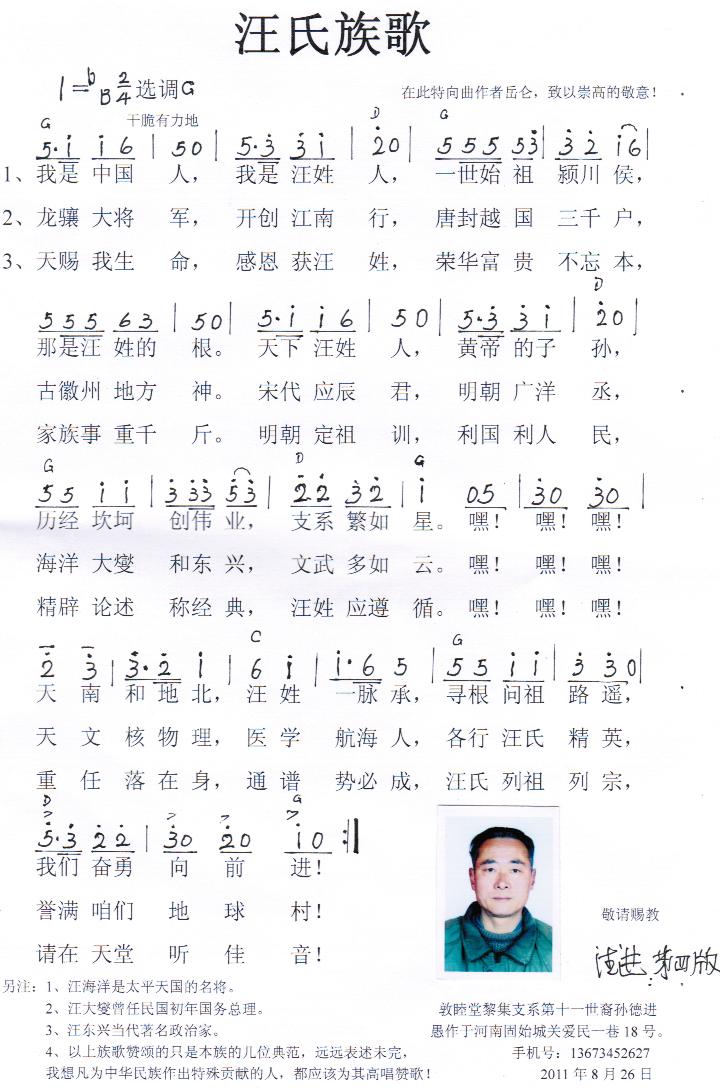 汪氏族歌
1=bB 2/4 选调G
在此特向曲作者岳仑，致以崇高的敬意！
干脆有力地
G D G
5·i i6 | 50 | 5·3 3i | 20 | 555 53 | 32 i6 |
1、我是 中国 人， 我是 汪姓 人， 一世始 祖 颍川 侯，
2、龙骧 大将 军， 开创 江南 行， 唐封越 国 三千 户，
3、天赐 我生 命， 感恩 获汪 姓， 荣华富 贵 不忘 本，
D
555 63 | 50 | 5·i i6 | 50 | 5·3 3i | 20 |
那是汪 姓的 根。 天下 汪姓 人， 黄帝 的子 孙，
古徽州 地方 神。 宋代 应辰 君， 明朝 广洋 丞，
家族事 重千 斤。 明朝 定祖 训， 利国 利人 民，
G D G
55 ii | 333 53 | 22 32 | i 05 | 30 30 |
历经 坎坷 创伟 业， 支系 繁如 星。 嘿！ 嘿！ 嘿！
海洋 大燮 和东 兴， 文武 多如 云。 嘿！ 嘿！ 嘿！
精辟 论述 称经 典， 汪姓 应遵 循。 嘿！ 嘿！ 嘿！
C G
2 3 | 3·2 i | 6 i | i·6 5 | 55 ii | 3 30 |
天 南 和 地 北， 汪 姓 一脉 承， 寻根 问祖 路 遥，
天 文 核 物 理， 医 学 航海 人， 各行 汪氏 精 英，
重 任 落 在 身， 通 谱 势必 成， 汪氏 列祖 列 宗，
D G
5·3 22 | 30 20 | i0 :||
我们 奋勇 向 前 进！
誉满 咱们 地 球 村！
请在 天堂 听 佳 音！
敬请赐教
汪进 第四版
另注：1、汪海洋是太平天国的名将。
2、汪大燮曾任民国初年国务总理。
3、汪东兴当代著名政治家。
4、以上族歌赞颂的只是本族的几位典范，远远表述未完，
我想凡为中华民族作出特殊贡献的人，都应该为其高唱赞歌！
敦睦堂黎集支系第十一世裔孙德进
愚作于河南固始城关爱民一巷 18 号。
手机号：13673452627
2011 年 8 月 26 日